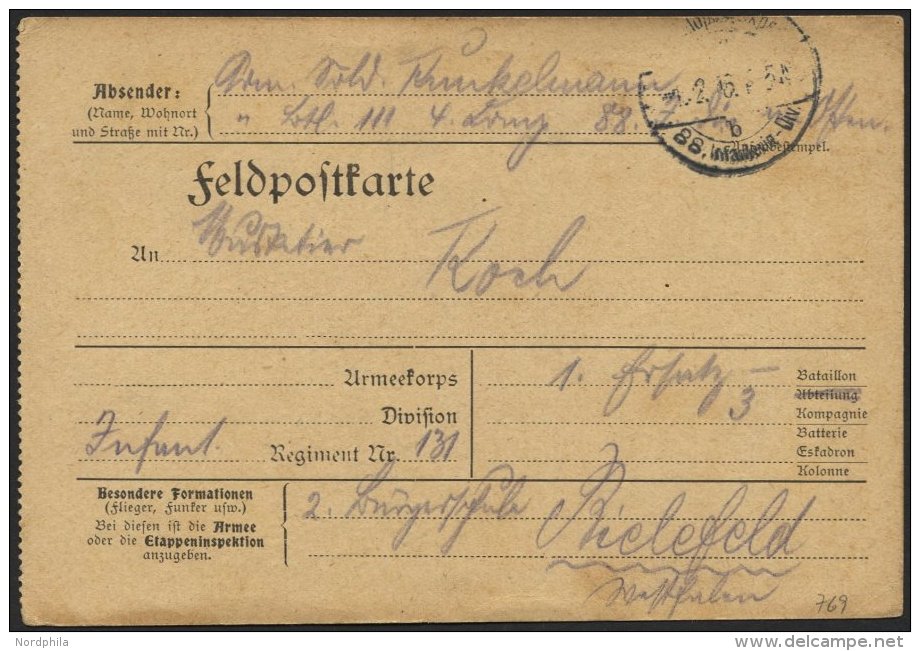 Absender:
(Name, Wohnort
und Straße mit Nr.)
Arm. Sold. Kunkelmann
" Btl. 111 4. Komp. 88. Osten.
2. 5N
b
88. Infanterie-Div.
Feldpostkarte
An Musketier Koch
Armeekorps
Division
Infant. Regiment Nr. 131
1. Ersatz - Bataillon
Abteilung
3 Kompagnie
Batterie
Eskadron
Kolonne
Besondere Formationen
(Flieger, Funker usw.)
Bei diesen ist die Armee
oder die Etappeninspektion
anzugeben.
2. Bürgerschule Bielefeld
Westfalen
769
Nordphila
www.delcampe.net